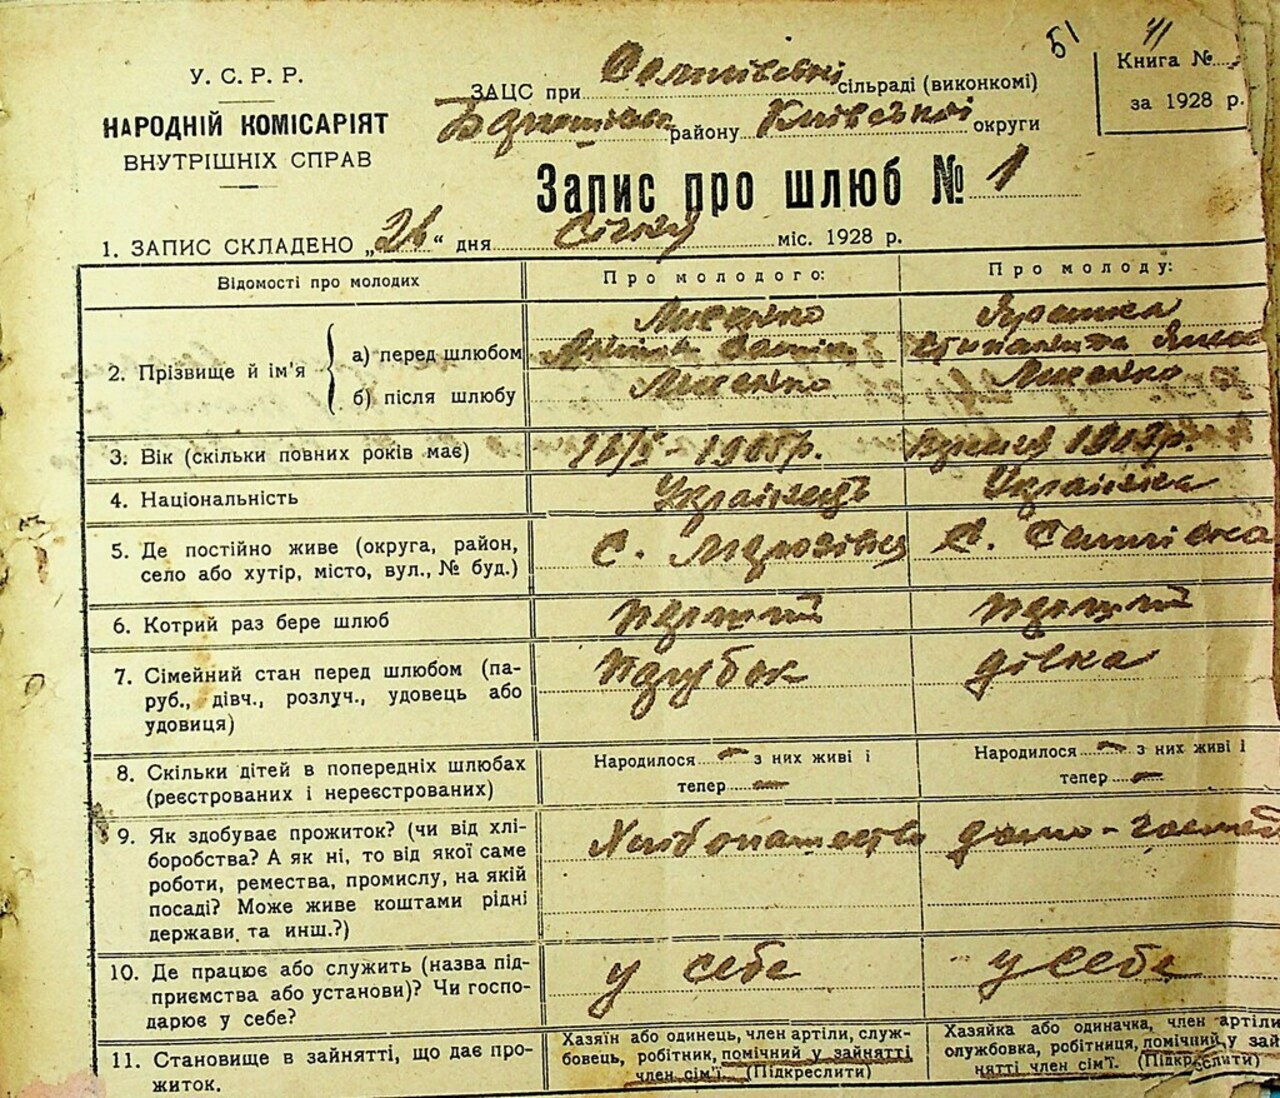 51
41
У. С. Р. Р.
НАРОДНІЙ КОМІСАРІЯТ
ВНУТРІШНІХ СПРАВ
ЗАЦС при сільраді (виконкомі)
району Київської округи
Книга №
за 1928 р.
Запис про шлюб № 1
1. ЗАПИС СКЛАДЕНО „26“ дня Січня міс. 1928 р.
Відомості про молодих
Про молодого:
Про молоду:
2. Прізвище й ім'я
а) перед шлюбом
б) після шлюбу
Лисенко
Лисенко
Лисенко
3. Вік (скільки повних років має)
4. Національність
Українець
Українка
5. Де постійно живе (округа, район,
село або хутір, місто, вул., № буд.)
с.
с.
6. Котрий раз бере шлюб
первий
первий
7. Сімейний стан перед шлюбом (па-
руб., дівч., розлуч., удовець або
удовиця)
парубок
дівка
8. Скільки дітей в попередніх шлюбах
(реєстрованих і нереєстрованих)
Народилося — з них живі і
тепер —
Народилося — з них живі і
тепер —
9. Як здобуває прожиток? (чи від хлі-
боробства? А як ні, то від якої саме
роботи, ремества, промислу, на якій
посаді? Може живе коштами рідні
держави та инш.?)
Хлібопашество
10. Де працює або служить (назва під-
приємства або установи)? Чи госпо-
дарює у себе?
у себе
у себе
11. Становище в зайнятті, що дає про-
житок.
Хазяїн або одинець, член артіли, служ-
бовець, робітник, помічний у зайнятті
член сім'ї. (Підкреслити)
Хазяйка або одиначка, член артіли
службовка, робітниця, помічний у зай
нятті член сім'ї. (Підкреслити)